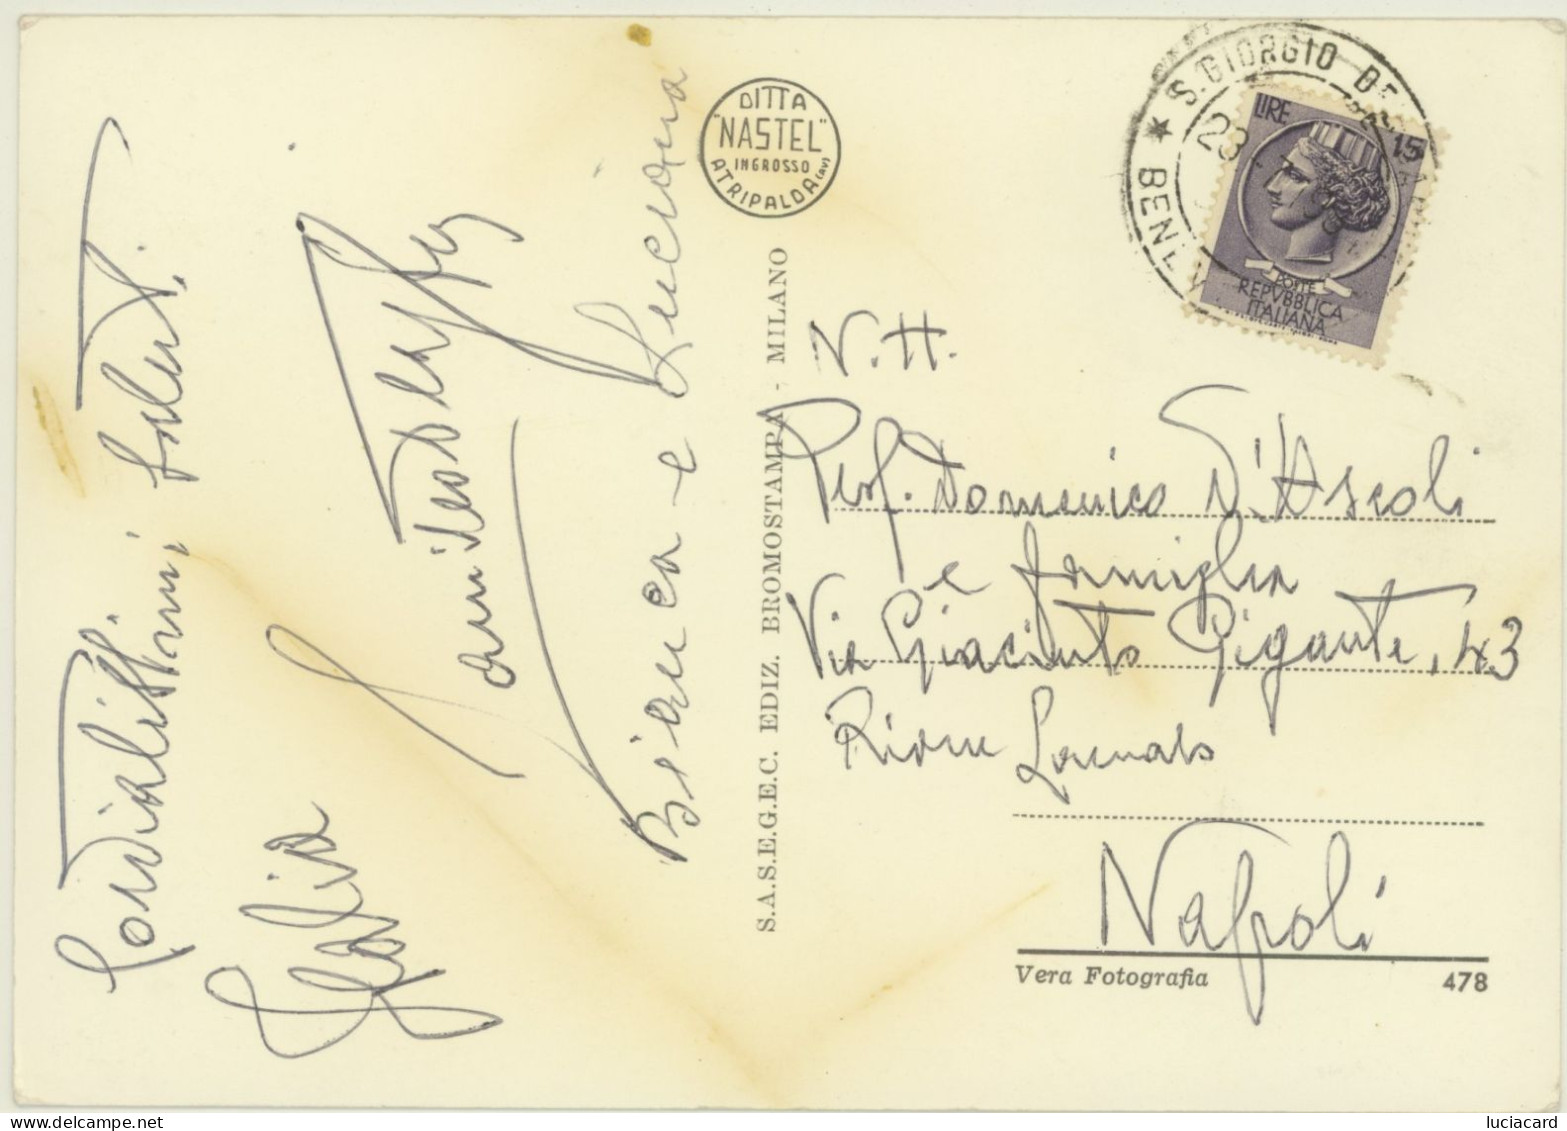 Cordialissimi saluti.
Italia
Bianca e Luciana
DITTA
"NASTEL"
INGROSSO
ATRIPALDA (AV)
S.A.S.E.G.E.C. EDIZ. BROMOSTAMPA - MILANO
S. GIORGIO DE
BENEV
23
LIRE 15
POSTE
REPVBBLICA
ITALIANA
N.H.
Prof. Domenico D'Ascoli
e famiglia
Via Giacinto Gigante, 43
Rione
Napoli
Vera Fotografia 478
luciacard